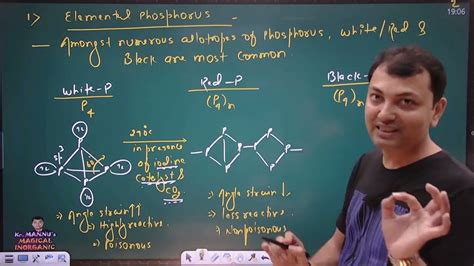 1) Elemental Phosphorus -
2
19:06
— Amongst numerous allotropes of Phosphorus, White/Red &
Black are most common.
White-P
P4
Red-P
(P4)n
Black-P
(P4)n
η2
sp3
60°
η2
η2
η2
290c
in presence
of iodine
Catalyst &
CO2
P
P
P
P
P
P
P
P
⇒ Angle strain ↑↑
⇒ Highly reactive
⇒ Poisonous
⇒ Angle strain ↓
⇒ less reactive.
⇒ Nonpoisonous
Kr. MANNU's
MAGICAL
INORGANIC